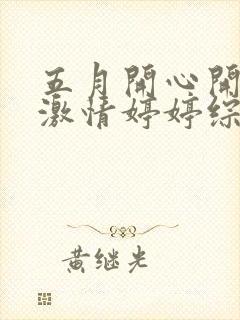 五月開心開
激情婷婷綜
黄继光